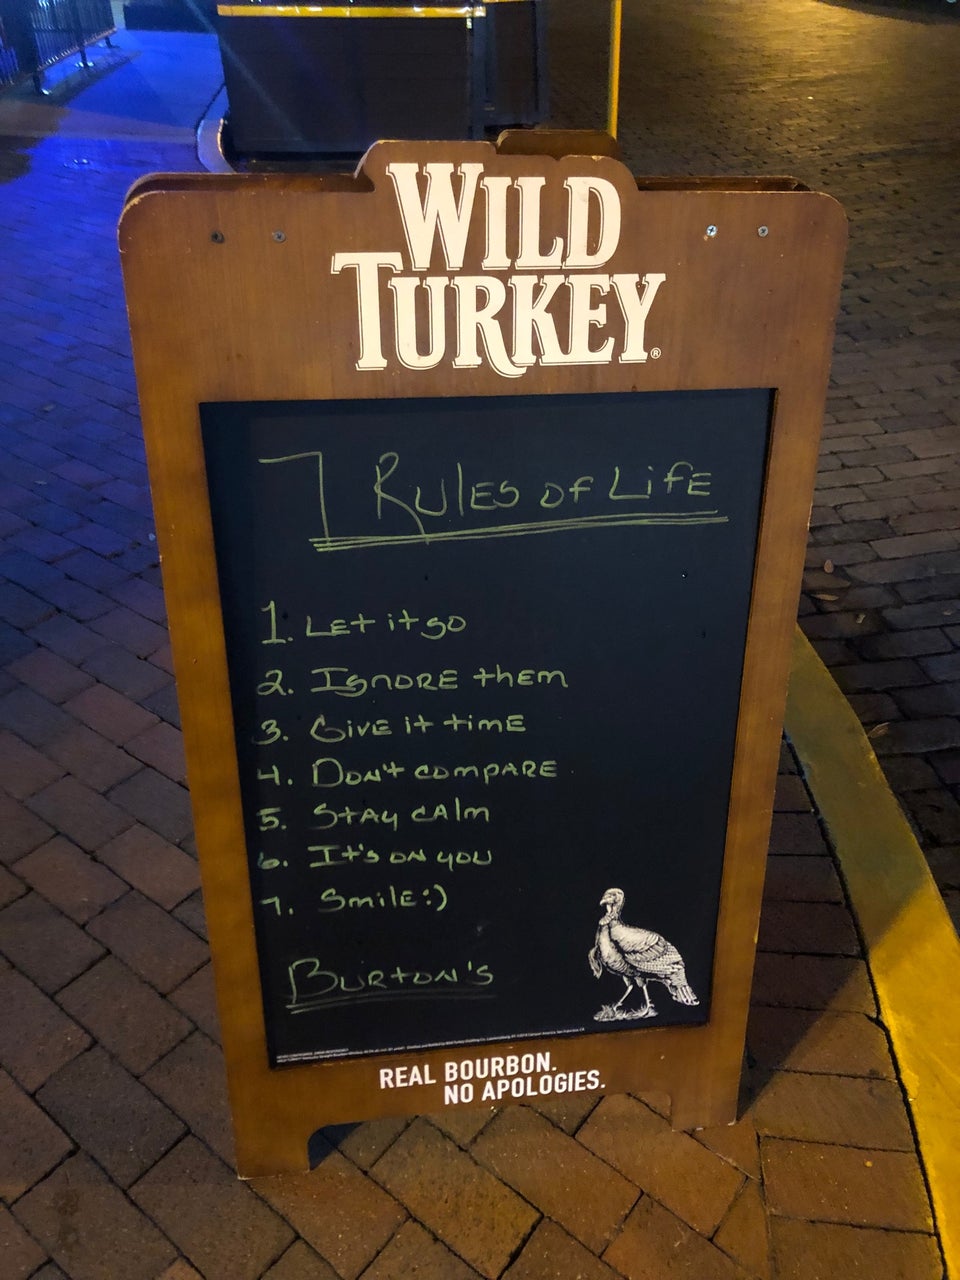 WILD
TURKEY®
7 RULES OF LIFE
1. LET it go
2. IGNORE them
3. GIVE it time
4. DON't COMPARE
5. Stay CALM
6. It's ON YOU
7. SmILE :)
BURTON'S
REAL BOURBON.
NO APOLOGIES.